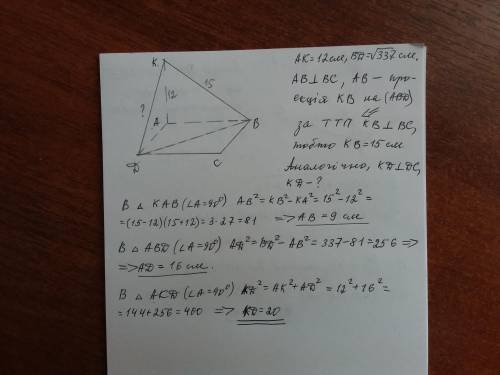 K
15
12
?
A
B
D
C
AK=12см, BD=√337 см.
AB⊥BC, AB – про-
екція KB на (ABD)
за ТТП KB⊥BC,
тобто KB=15 см
Аналогічно, KD⊥DC,
KD-?
В △ KAB (∠A=90°) AB²=KB²-KA²=15²-12²=
=(15-12)(15+12)=3·27=81 => AB=9 см
В △ ABD (∠A=90°) AD²=BD²-AB²=337-81=256 =>
=>AD=16 см.
В △ AKD (∠A=90°) KD²=AK²+AD²=12²+16²=
=144+256=400 => KD=20